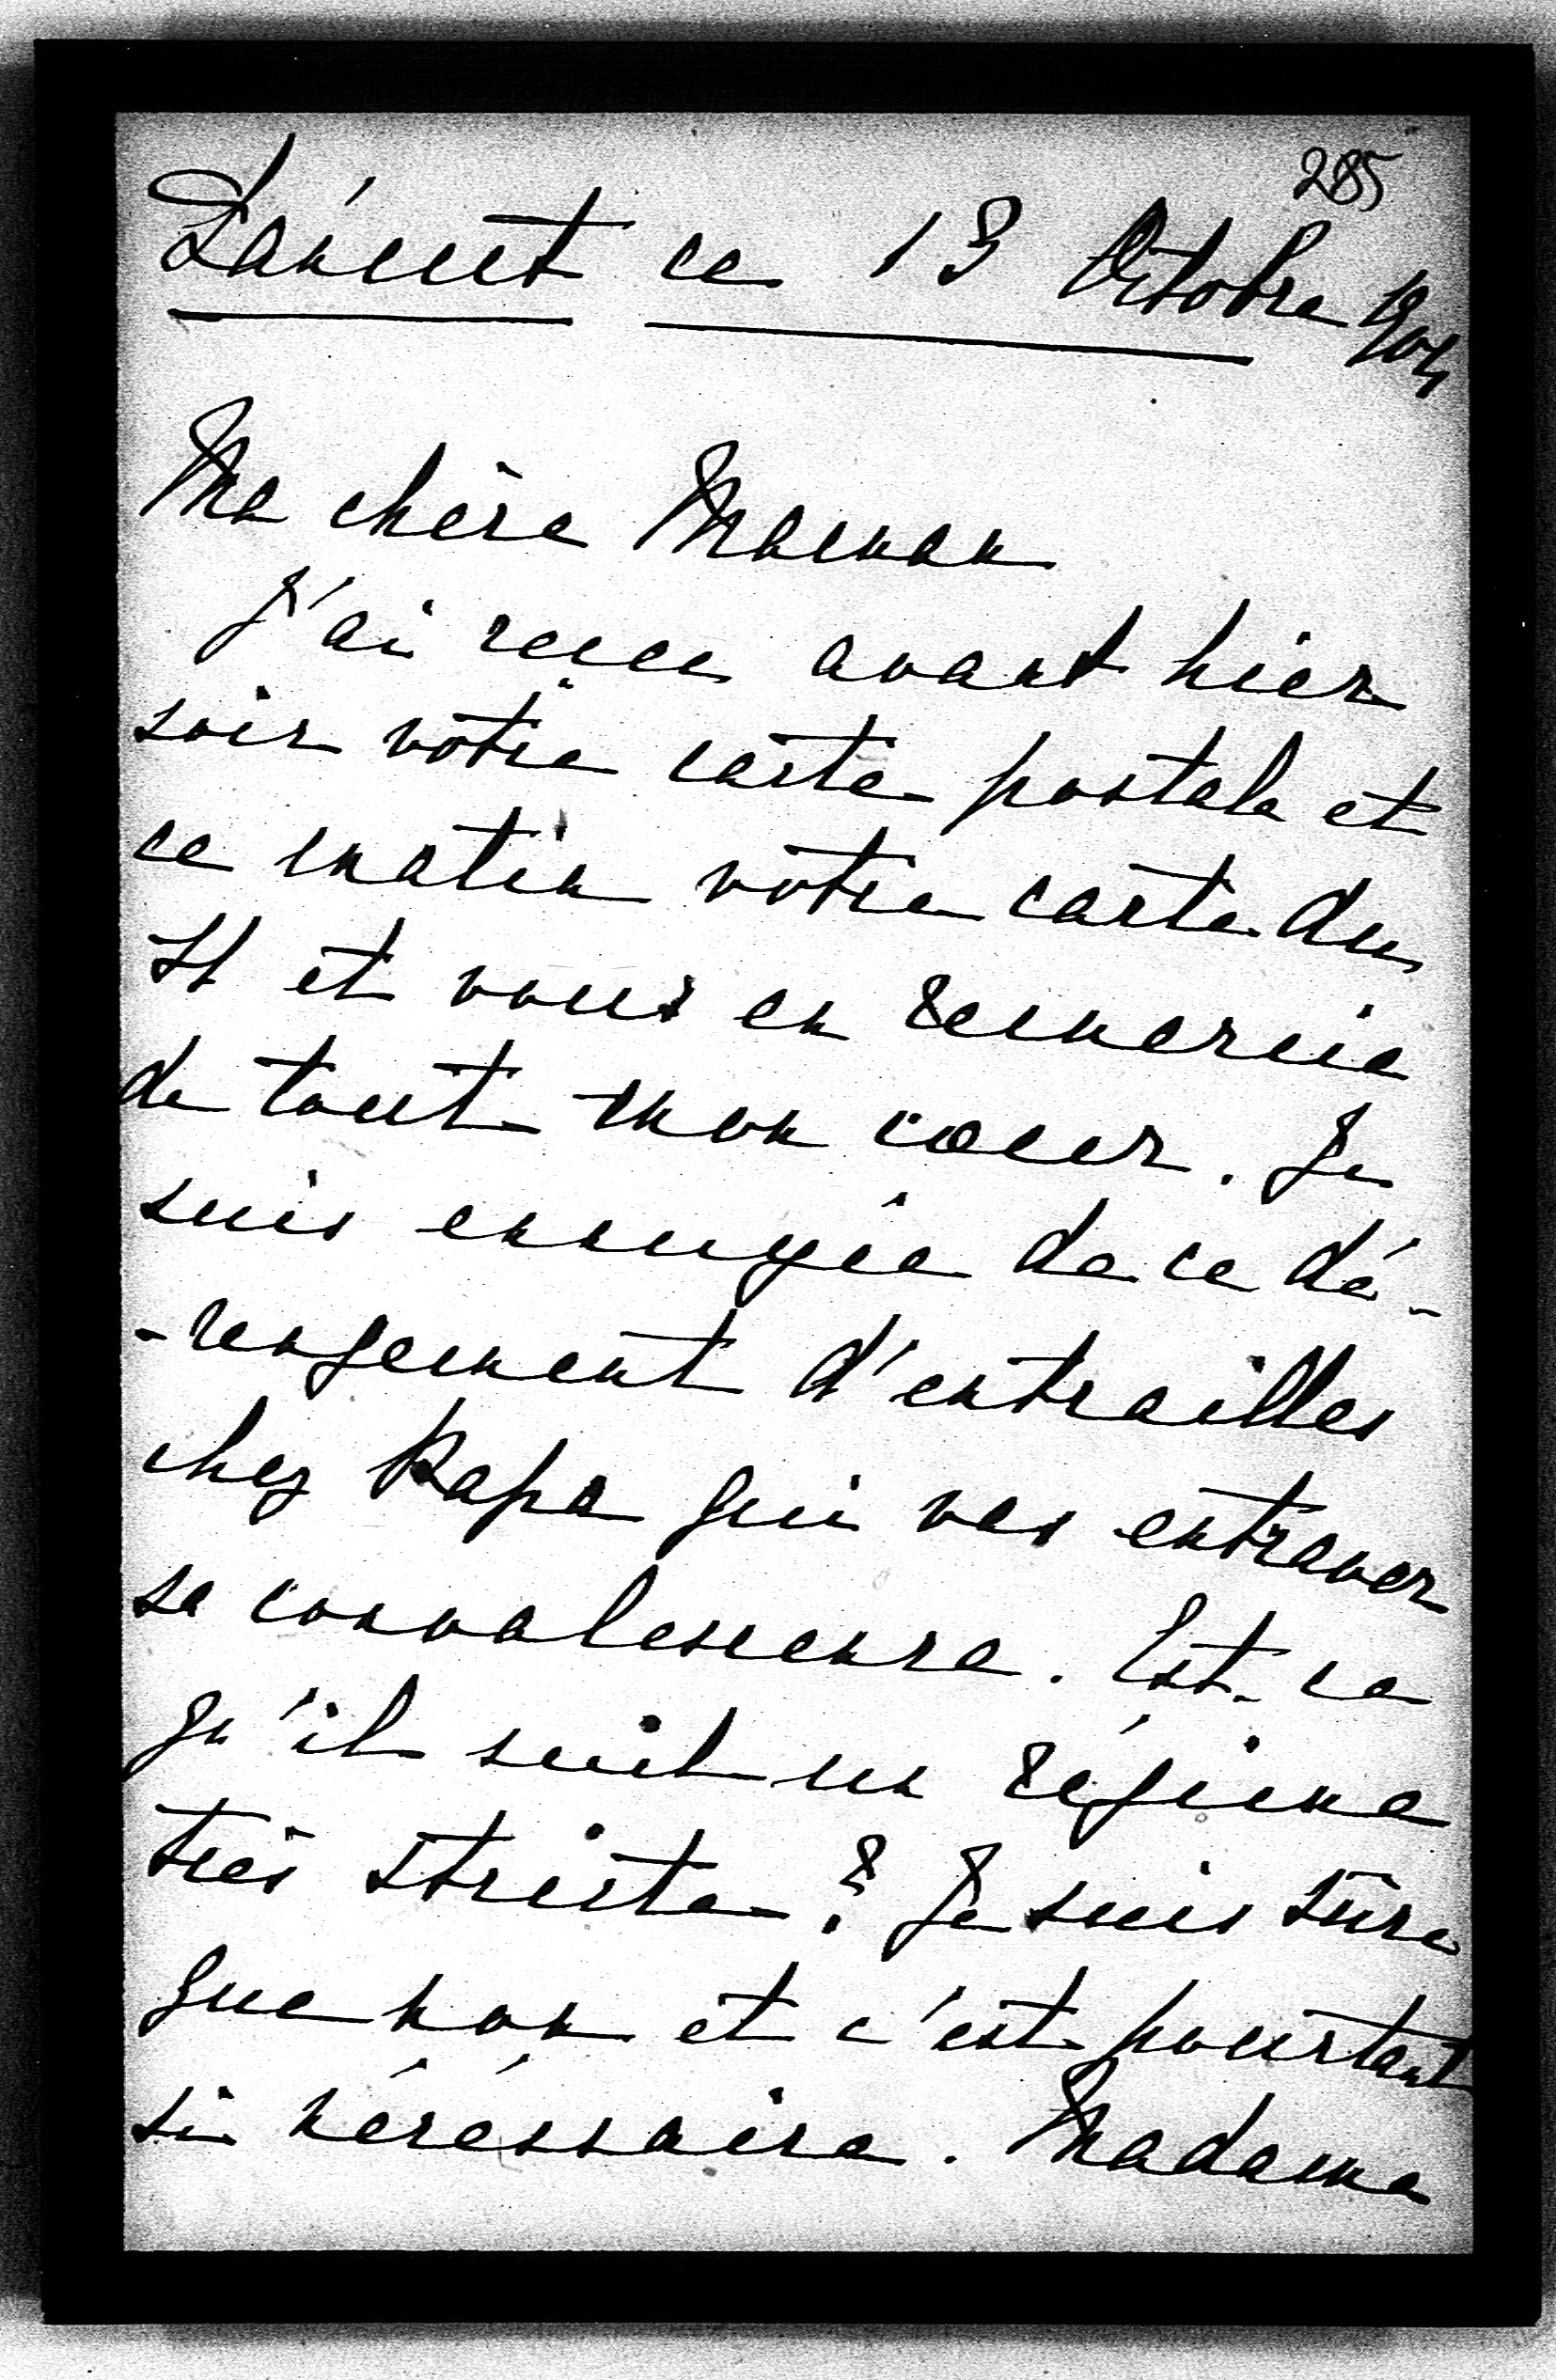 285
ce 13 Octobre 1904
Ma chère Maman
J'ai reçu avant hier
soir vôtre carte postale et
ce matin vôtre carte du
11 et vous en remercie
de tout mon cœur. Je
suis ennuyée de ce dé-
-rengement d'entrailles
chez Papa qui vas entraver
sa convalescence. Est-ce
qu'il suit un régime
très stricte? Je suis sûre
que non et c'est pourtant
si nécéssaire. Madame